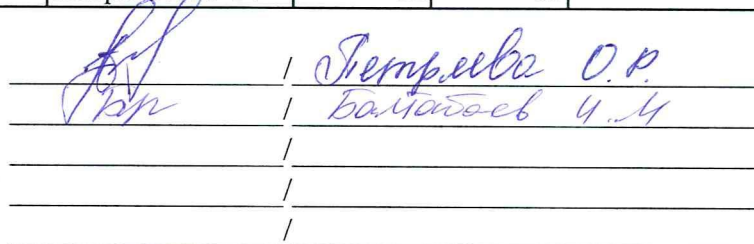 / Петряева О.Р.
/ Баматаев И.М
/
/
/